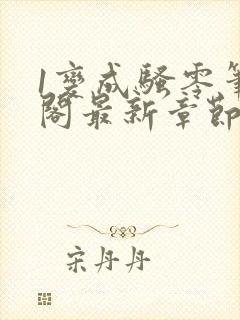 1变成骚零笔
阁最新章节
宋丹丹